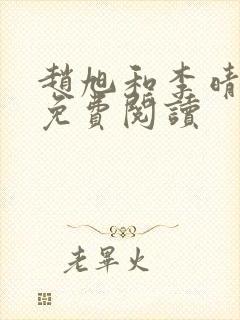 趙旭和李晴
免費閱讀
老畢火